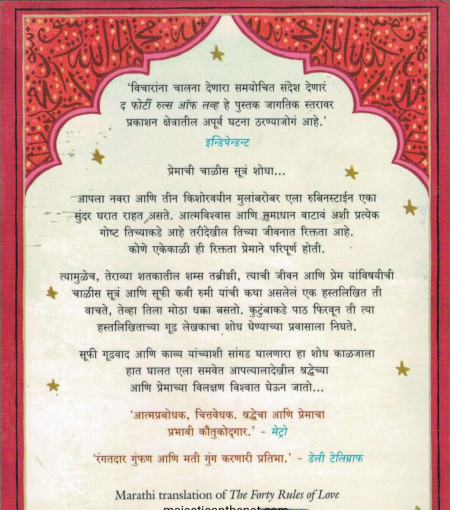 'विचारांना चालना देणारा समयोचित संदेश देणारं
द फोर्टी रुल्स ऑफ लव्ह हे पुस्तक जागतिक स्तरावर
प्रकाशन क्षेत्रातील अपूर्व घटना ठरण्याजोगं आहे.'
इन्डिपेन्डन्ट
प्रेमाची चाळीस सूत्रं शोधा...
आपला नवरा आणि तीन किशोरवयीन मुलांबरोबर एला रुबिनस्टाईन एका
सुंदर घरात राहत असते. आत्मविश्वास आणि समाधान वाटावं अशी प्रत्येक
गोष्ट तिच्याकडे आहे तरीदेखील तिच्या जीवनात रिक्तता आहे.
कोणे एकेकाळी ही रिक्तता प्रेमाने परिपूर्ण होती.
त्यामुळेच, तेराव्या शतकातील शम्स तब्रीझी, त्याची जीवन आणि प्रेम यांविषयीची
चाळीस सूत्रं आणि सूफी कवी रुमी यांची कथा असलेलं एक हस्तलिखित ती
वाचते, तेव्हा तिला मोठा धक्का बसतो. कुटुंबाकडे पाठ फिरवून ती त्या
हस्तलिखिताच्या गूढ लेखकाचा शोध घेण्याच्या प्रवासाला निघते.
सूफी गूढवाद आणि काव्य यांच्याशी सांगड घालणारा हा शोध काळजाला
हात घालत एला समवेत आपल्यालादेखील श्रद्धेच्या
आणि प्रेमाच्या विलक्षण विश्वात घेऊन जातो...
'आत्मप्रबोधक, चित्तवेधक. श्रद्धेचा आणि प्रेमाचा
प्रभावी कौतुकोद्गार.' - मेट्रो
'रंगतदार गुंफण आणि मती गुंग करणारी प्रतिभा.' - डेली टेलिग्राफ
Marathi translation of The Forty Rules of Love
majesticonthenet.com